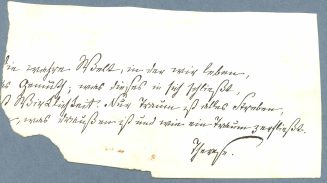 die wahre Welt, in der wir leben,
as Gemüth; was dieses in sich schließt,
st Wirklichkeit. Nur Traum ist alles Streben,
, was draußen ist und wie ein Traum zerfließt.
Therese.